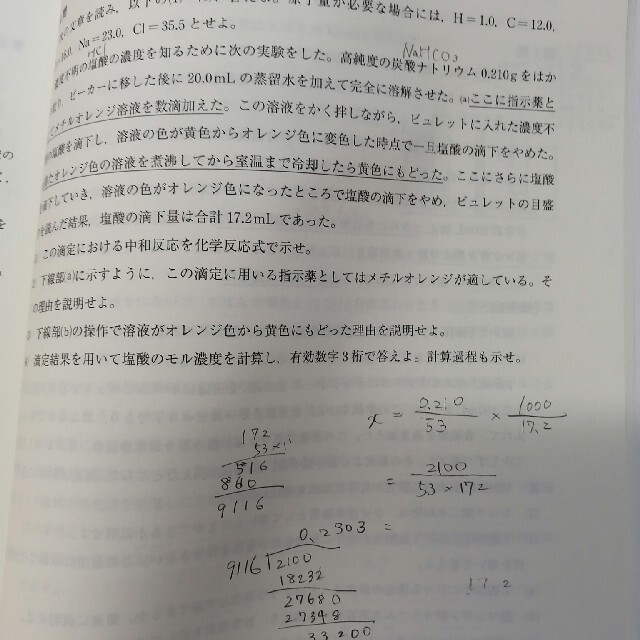 の文章を読み，以下の
原子量が必要な場合には，H＝1.0，C＝12.0，
16.0，Na＝23.0，Cl＝35.5とせよ。
HCl
NaHCO3
度不明の塩酸の濃度を知るために次の実験をした。高純度の炭酸ナトリウム0.210gをはか
り，ビーカーに移した後に20.0mLの蒸留水を加えて完全に溶解させた。(a)ここに指示薬と
てメチルオレンジ溶液を数滴加えた。この溶液をかく拌しながら，ビュレットに入れた濃度不
の塩酸を滴下し，溶液の色が黄色からオレンジ色に変色した時点で一旦塩酸の滴下をやめた。
オレンジ色の溶液を煮沸してから室温まで冷却したら黄色にもどった。ここにさらに塩酸
滴下していき，溶液の色がオレンジ色になったところで塩酸の滴下をやめ，ビュレットの目盛
を読んだ結果，塩酸の滴下量は合計17.2mLであった。
この滴定における中和反応を化学反応式で示せ。
下線部(a)に示すように，この滴定に用いる指示薬としてはメチルオレンジが適している。そ
の理由を説明せよ。
下線部(b)の操作で溶液がオレンジ色から黄色にもどった理由を説明せよ。
滴定結果を用いて塩酸のモル濃度を計算し，有効数字3桁で答えよ。計算過程も示せ。
x = 0.210/53 × 1000/17.2
172
53
516
860
9116
= 2100/53×172
0.2303 =
9116 2100
18232
27680
27348
33200
17.2